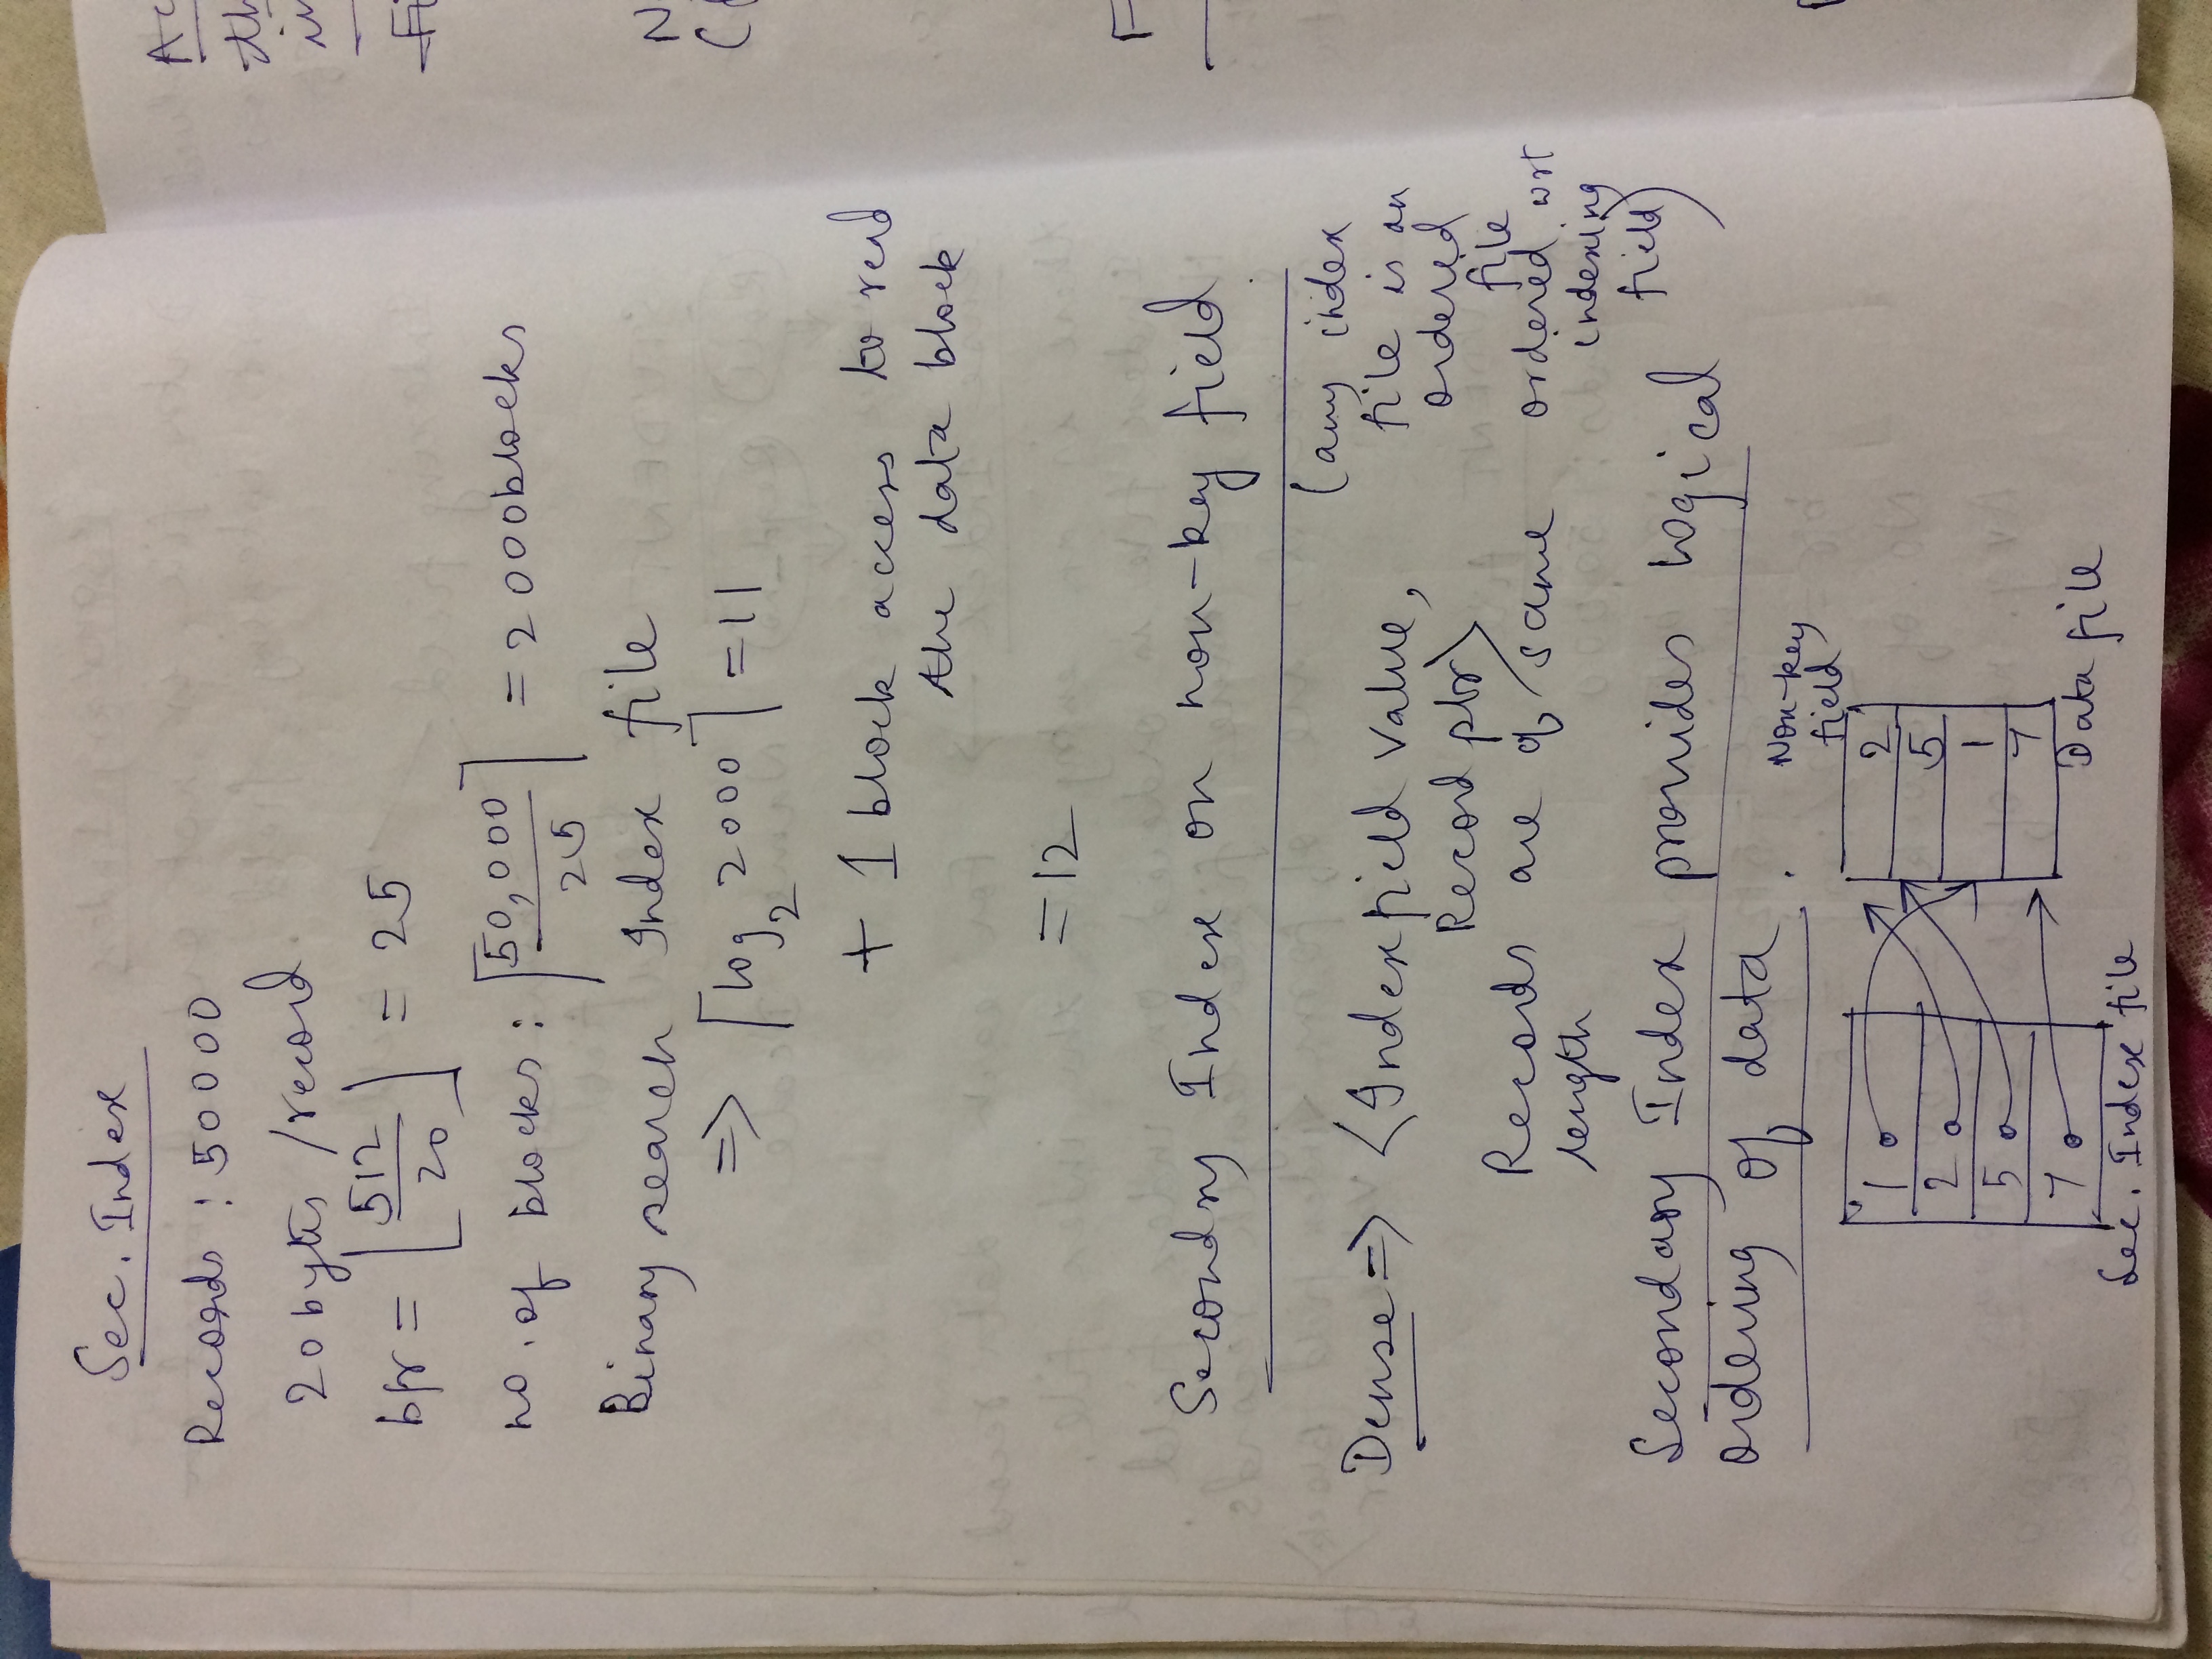 Sec. Index
Records : 50000
20 bytes /record
bfr = ⌊512/20⌋ = 25
no. of blocks : ⌈50,000/25⌉ = 2000 blocks
Binary search Index file
=> ⌈log₂ 2000⌉ = 11
+ 1 block access to read
the data block
= 12
Secondry Index on non-key field
Dense => <Index field value,
Record ptr>
Records are of same
length
(any index
file is an
ordered
file
ordered wrt
indexing
field)
Secondary Index provides logical
ordering of data.
Non-key
field
1
2
5
7
Sec. Index file
2
5
1
7
Data file
th
N
F